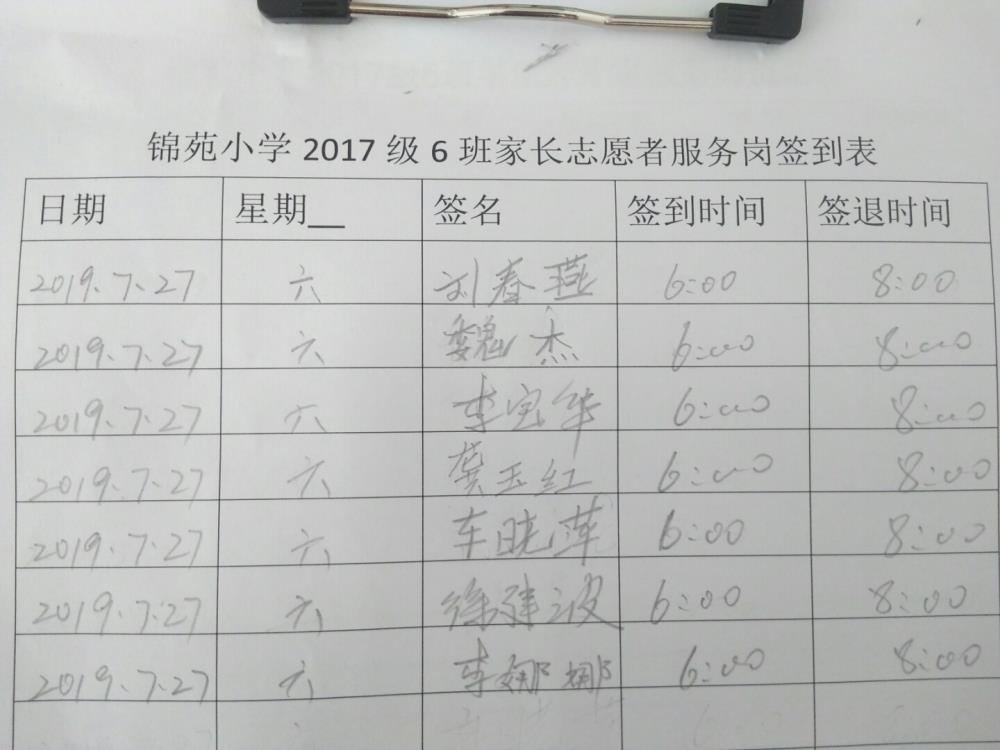 锦苑小学2017级6班家长志愿者服务岗签到表
日期 星期__ 签名 签到时间 签退时间
2019.7.27 六 刘春燕 6:00 8:00
2019.7.27 六 魏杰 6:00 8:00
2019.7.27 六 李宝华 6:00 8:00
2019.7.27 六 龚玉红 6:00 8:00
2019.7.27 六 车晓萍 6:00 8:00
2019.7.27 六 徐建波 6:00 8:00
2019.7.27 六 李娜娜 6:00 8:00